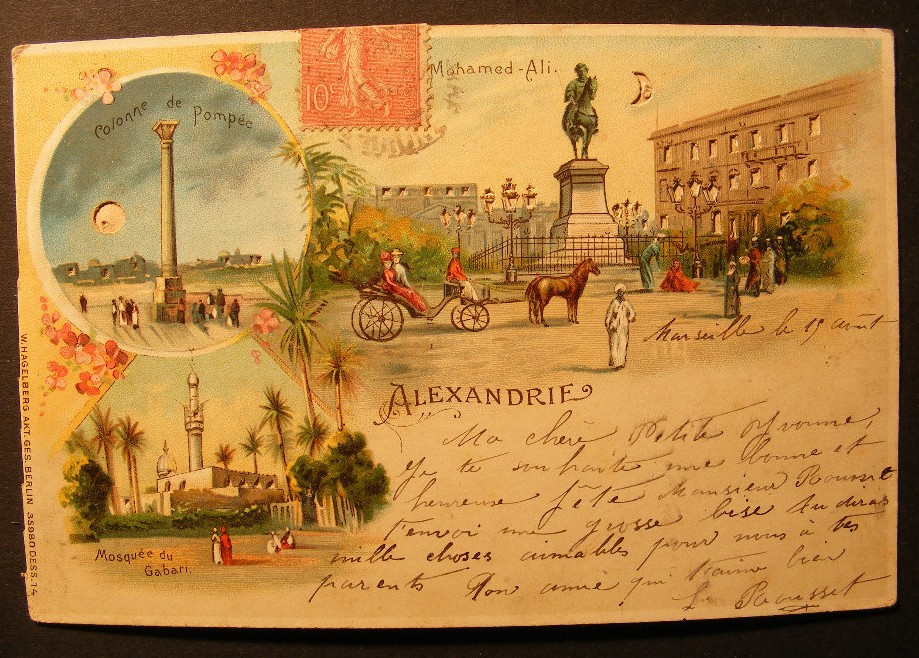 Colonne de Pompée
10c
Mohamed-Ali.
Marseille le 19 août
ALEXANDRIE
Ma chère Petite Yvonne,
Je te souhaite une bonne et
heureuse fête Monsieur Rousset
t'envoi une grosse bise tu diras
mille choses aimables pour nous à tes
parents Ton amie qui t'aime bien
L. Rousset
Mosquée du
Gabari.
W. HAGELBERG AKT. GES. BERLIN 35980 DESS. 14